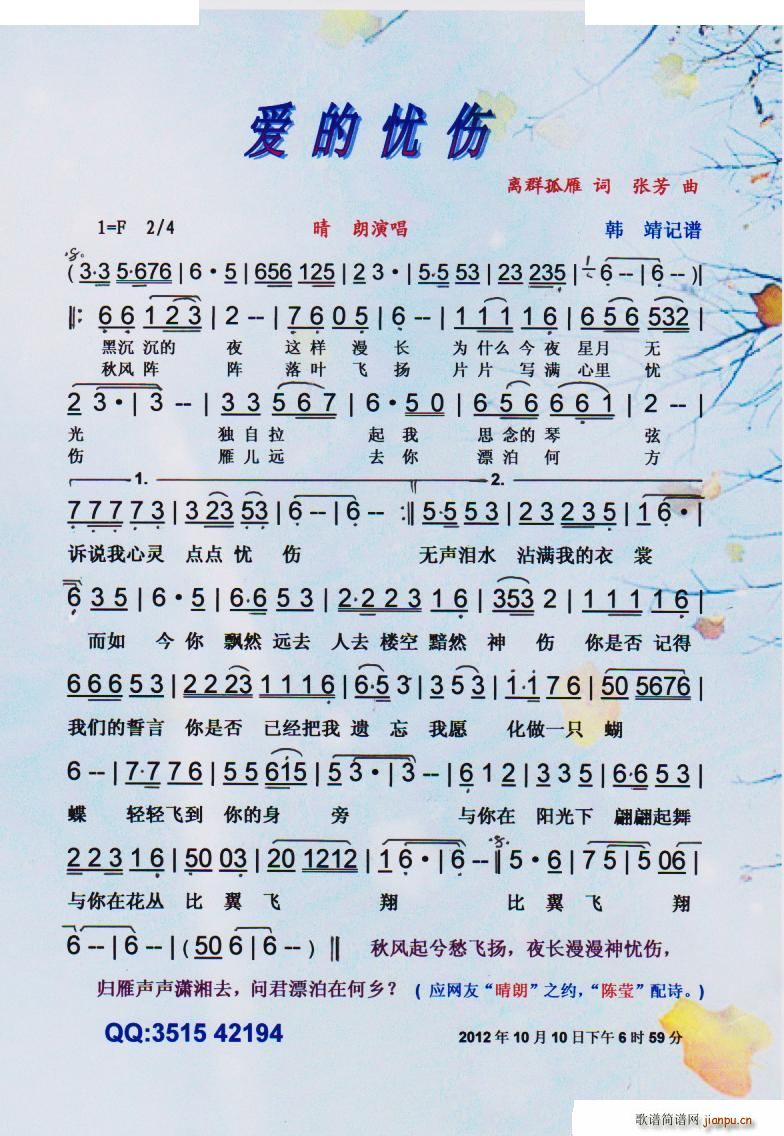 爱的忧伤
离群孤雁 词 张芳 曲
1=F 2/4 晴 朗演唱 韩 靖记谱
(3·3 5·676 | 6·5 | 656 125 | 2 3· | 5·5 53 | 23 235 | 6 -- | 6 -- )||
||: 6 6 1 2 3 | 2 -- | 7 6 0 5 | 6 -- | 1 1 1 1 6 | 6 5 6 532 |
黑沉 沉的 夜 这样 漫 长 为 什么 今夜 星月 无
秋风 阵 阵 落叶 飞 扬 片 片 写 满 心里 忧
2 3· | 3 -- | 3 3 5 6 7 | 6·5 0 | 6 5 6 6 6 1 | 2 -- |
光 独 自 拉 起 我 思 念的 琴 弦
伤 雁 儿 远 去 你 漂 泊 何 方
1. 2.
7 7 7 7 3 | 3 23 53 | 6 -- | 6 -- :|| 5·5 5 3 | 2 3 2 3 5 | 1 6· |
诉说我心灵 点点 忧 伤 无声泪水 沾满我的衣 裳
6 3 5 | 6·5 | 6·6 5 3 | 2·2 2 3 1 6 | 353 2 | 1 1 1 1 6 |
而如 今你 飘然 远去 人去 楼空 黯然 神 伤 你是否 记得
6 6 6 5 3 | 2 2 23 1 1 1 6 | 6·5 3 | 3 5 3 | 1·1 7 6 | 50 5676 |
我们的誓言 你是否 已经把我 遗 忘 我愿 化做一只 蝴
6 -- | 7·7 7 6 | 5 5 615 | 5 3· | 3 -- | 6 1 2 | 3 3 5 | 6·6 5 3 |
蝶 轻轻飞到 你的身 旁 与你在 阳光下 翩翩起舞
2 2 3 1 6 | 50 03 | 20 1212 | 1 6· | 6 -- || 5·6 | 7 5 | 5 06 |
与你在花丛 比 翼 飞 翔 比 翼 飞 翔
6 -- | 6 -- | (50 6 | 6 -- ) || 秋风起兮愁飞扬，夜长漫漫神忧伤，
归雁声声潇湘去，问君漂泊在何乡？（ 应网友“晴朗”之约，“陈莹”配诗。）
QQ:3515 42194 2012 年 10 月 10 日下午 6 时 59 分
歌谱简谱网 jianpu.cn